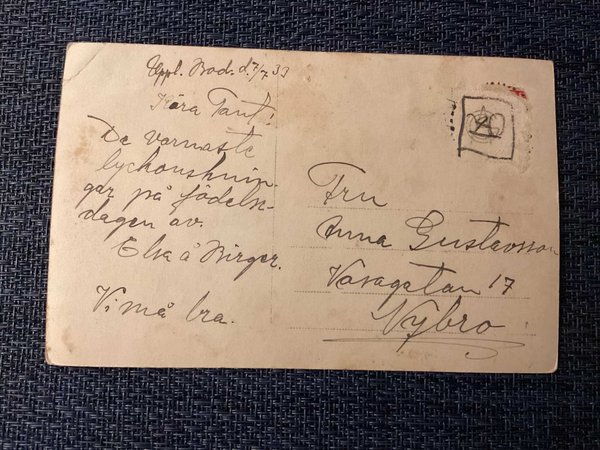 Uppl. Bod. d. 7/7. 33
Kära Tant!
De varmaste
lyckonsknin-
gar på födels-
dagen av.
Elsa å Birger.
Vi må bra.
Fru
Anna Gustavsson
Vasagatan 17
Nybro